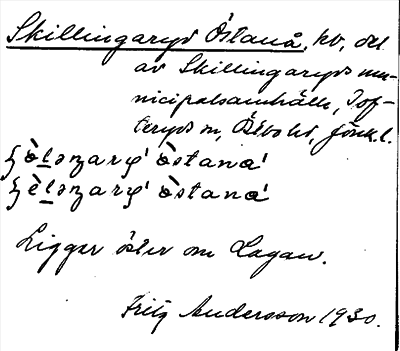 Skillingaryds Östanå, hd, del
av Skillingaryds mu-
nicipalsamhälle, Tof-
teryds sn, Östbo hd, Jönk. l.
östanå
östanå
Ligger öster om Lagan.
Fritz Andersson 1930.